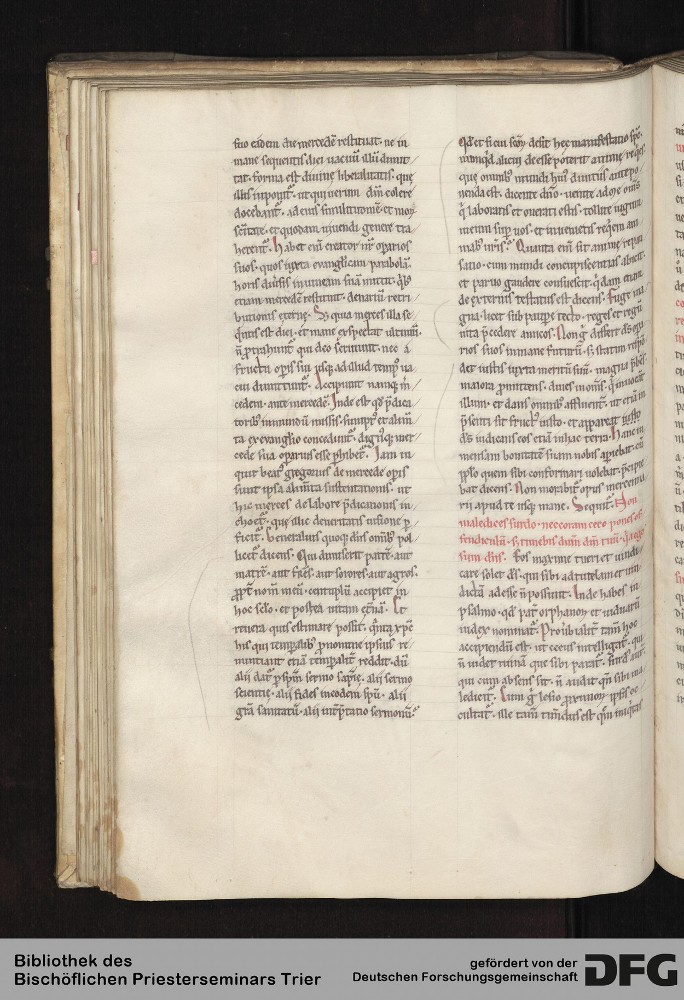 suo eadem die mercedē restituat. ne in
mane sequentis diei vacuū illū dimit
tat. forma est divine liberalitatis. quę
illis inponit. ut qui verum dm̄ colere
docebant. ad eius similitudinē. et mox
herent. Habet enī creator nr̄ operarios
suos. quos iuxta evangelicam parabolā
horis diversis in vineam suā mittit. qͥbꝰ
etiam mercedē restituit. denariū retri
butionis eternę. Sꝫ quia merces illa se
quentis est diei. et mane expectat ultimū.
n̄ protrahunt qui deo serviunt. nec a
fructu operis sui usque ad illud tempꝰ va
cui dimittunt. Accipiunt namque in
cedem. ante mercedē. Inde est qđ predica
toribꝰ in mundū missis. sumptꝰ et alim̄
ta ex evangelio concedunt. dignus que mer
cede sua operarius esse perhibet. Iam in
quit beatꝰ gregorius de mercede operis
sunt ipsa alim̄ta sustentationis. ut
hic merces de labore predicationis in
choet. que illic de veritatis visione per
ficit. Venerabilis quoque dn̄s omībꝰ pol
licet dicens. Qui dimiserit patrē. aut
matrē. aut fratres. aut sorores. aut agros.
propter nom̄ meū. centuplū accipiet in
hoc sclo. et postea vitam etn̄ā. Et
revera quis estimare possit. quanta xpc
his qui temporalibꝰ pro nomine ipsius re
nuntiant etiā temporalit reddit. dū
alii dat per spm̄ sermo sapīe. alii sermo
scientie. alii fides in eodem spū. alii
gr̄a sanitatū. alii interpretatio sermonū.
Qđ et si cui hec manifestatio spc.
numqd alicui deesse poterit anime requies.
que omnibꝰ mundi huiꝰ divitiis antepo
nenda est. dicente dno. venite ad me om̄s
qui laboratis et onerati estis. tollite iugum
meum super vos. et invenietis requiem ani
mabꝰ vr̄is. Quanta enī sit anime repau
satio. cum mundi concupiscentias abicit.
et parvo gaudere consuescit. quidam etiam
de externis testatus est dicens. Fuge ma
gna. licet sub paupere tecto. reges et regū
vita precedere amicos. Non g differt ds opa
rios suos in mane futurū. sꝫ statim respō
det iustis iuxta meritū suū. magna prebens
maiora promittens. dives in om̄s. qui invocāt
illum. et dans omnibꝰ affluent. ut etiā in
presenti sit fructꝰ iusto. et appareat iusto
ds iudicans eos etiā in hac terra. Hanc in
mensam bonitatē suam nobis aperiebat. cū
ipso quem sibi conformari volebat. precipie
bat dicens. Non morabit opus mercenna
rii apud te usque mane. Sequit. Non
maledices surdo. nec coram ceco pones of
fendiculū. sꝫ timebis dm̄ dm̄ tuū. quia ego
sum dn̄s. Eos maxime tueri et vindi
care solet ds. qui sibi ad tutelam et vin
dictā adesse n̄ possunt. Inde habes in
psalmo. qđ pater orphanorū et viduarū
iudex nominat. Prohibuerit tam̄ hoc
accipiendū est. ut cecus intelligat. qui
n̄ videt ruinā que sibi parat. surdꝰ aut
qui cum absens sit. n̄ audit quem sibi ma
ledicit. Cum g lesio proximorū ipsos oc
cultat. ille tam̄ timendus est quem iniquitas
Bibliothek des
Bischöflichen Priesterseminars Trier
gefördert von der
Deutschen Forschungsgemeinschaft
DFG